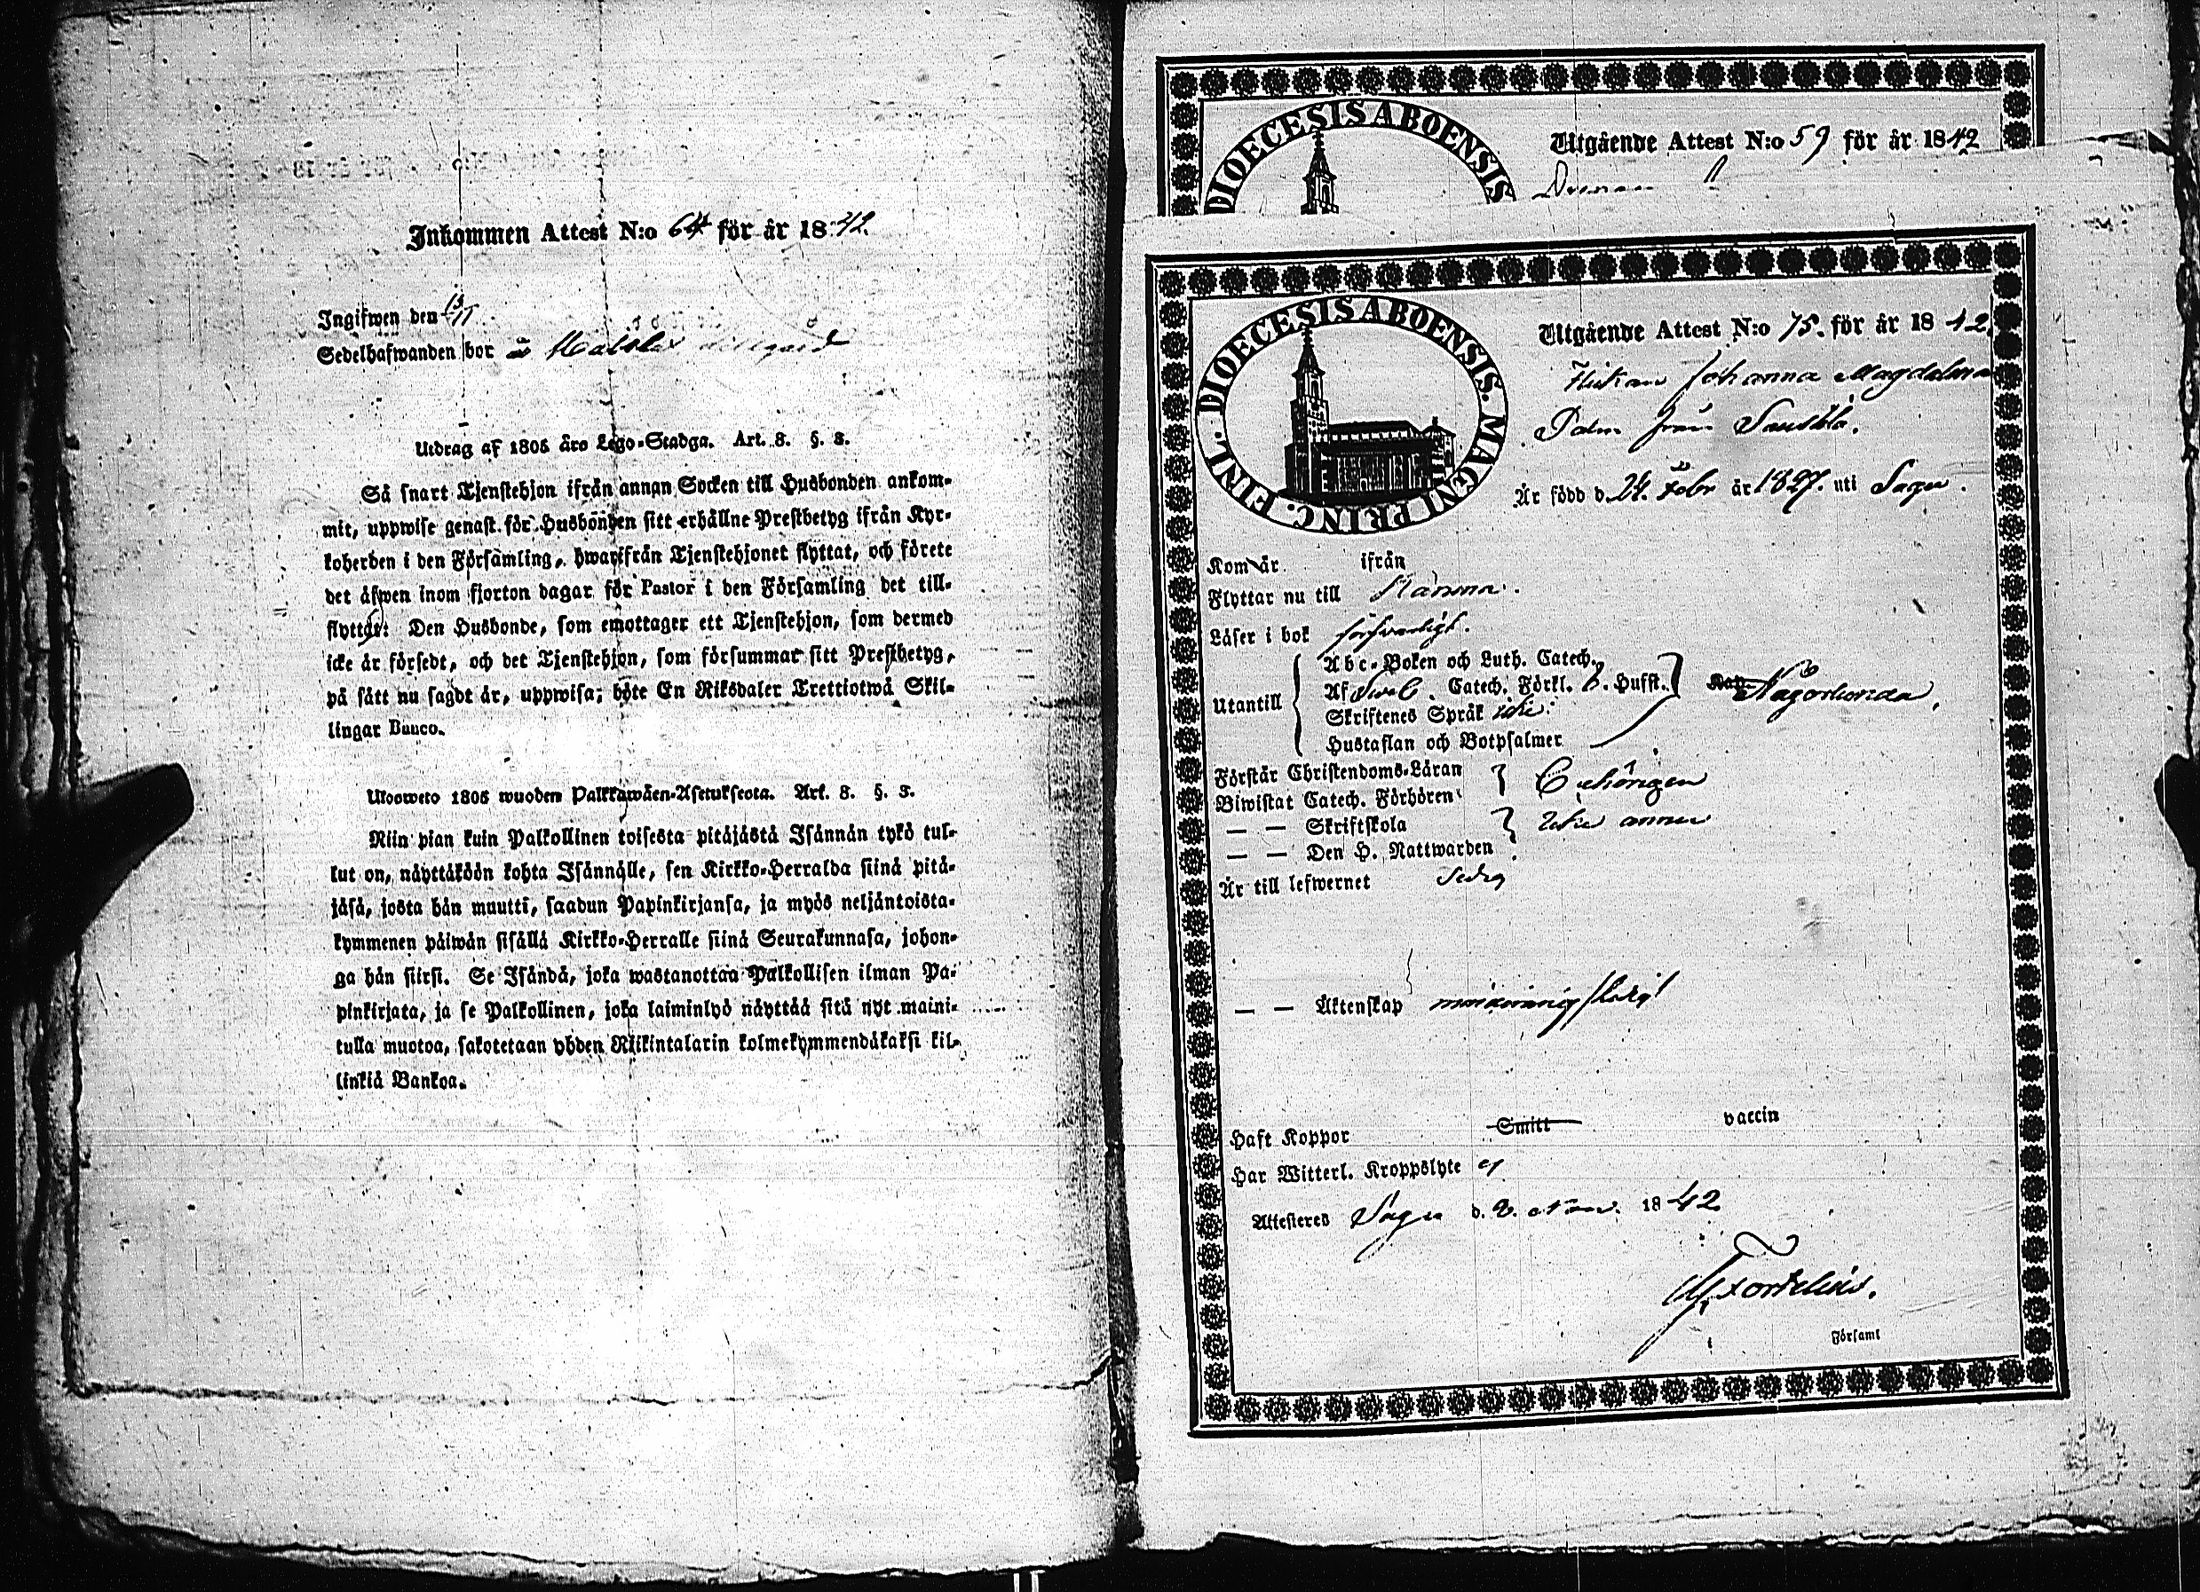 Inkommen Attest N:o 64 för år 1842.
Ingifwen den 13/11
Sedelhafwanden bor å
Utdrag af 1805 års Lego-Stadga. Art. 8. §. 8.
Så snart Tjenstehjon ifrån annan Socken till Husbonden ankom-
mit, uppwise genast för Husbonden sitt erhållne Prestbetyg ifrån Kyr-
koherden i den Församling, hwarifrån Tjenstehjonet flyttat, och förete
det äfwen inom fjorton dagar för Pastor i den Församling det till-
flyttar: Den Husbonde, som emottager ett Tjenstehjon, som dermed
icke är försedt, och det Tjenstehjon, som försummar sitt Prestbetyg,
på sätt nu sagdt är, uppwisa, böte En Riksdaler Trettiotwå Skil-
lingar Banco.
Ulosweto 1805 wuoden Palkkawäen-Asetuksesta. Art. 8. §. 8.
Niin pian kuin Palkollinen toisesta pitäjästä Isännän tykö tul-
lut on, näyttäköön kohta Isännälle, sen Kirkko-Herralda siinä pitä-
jäsä, josta hän muutti, saadun Papinkirjansa, ja myös neljäntoista-
kymmenen päiwän sisällä Kirkko-Herralle siinä Seurakunnasa, johon-
ga hän siirsi. Se Isändä, joka wastanottaa Palkollisen ilman Pa-
pinkirjata, ja se Palkollinen, joka laiminlyö näyttää sitä nyt maini-
tulla muotoa, sakotetaan yhden Riikintalarin kolmekymmendäkaksi kil-
linkiä Bankoa.
DIOECESIS ABOENSIS
Utgående Attest N:o 59 för år 1842
FINL. DIOECESIS ABOENSIS. MAGNI PRINC.
Utgående Attest N:o 75. för år 1842.
Flickan Johanna Magdalena
Palm från
Är född d. 24 Febr år 1827. uti Sagu.
Kom år ifrån
Flyttar nu till
Läser i bok försvarligt.
Utantill
Abc-Boken och Luth. Catech.
Af Sveb. Catech. Förkl. 6. Hufst.
Skriftenes Språk icke
Hustaflan och Botpsalmer
Någorlunda.
Förstår Christendoms-Läran
Biwistat Catech. Förhören
— — Skriftskola
— — Den H. Nattwarden
icke ännu
Är till lefwernet sedig
— — Äktenskap
Haft Koppor Smitt vaccin
Har Witterl. Kroppslyte ej
Attesteres Sagu d. 2. Nov. 1842
Församl